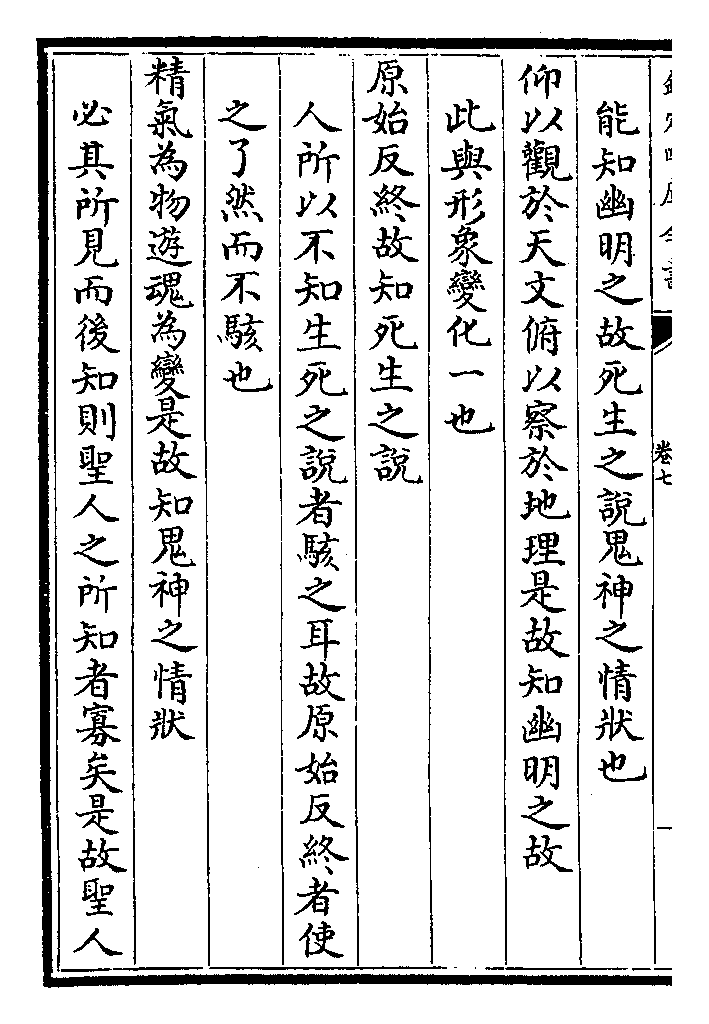 卷七
一
能知幽明之故死生之說鬼神之情狀也
仰以觀於天文俯以察於地理是故知幽明之故
此與形象變化一也
原始反終故知死生之說
人所以不知生死之說者駭之耳故原始反終者使
之了然而不駭也
精氣為物遊魂為變是故知鬼神之情狀
必其所見而後知則聖人之所知者寡矣是故聖人